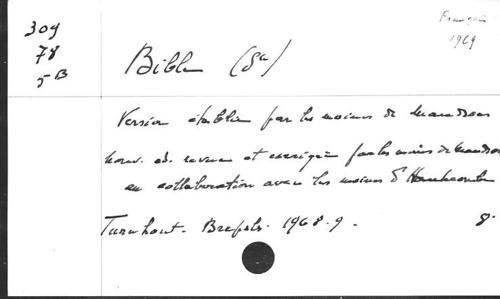 309
78
5 B
Français
1969
Bible (Ste)
Version établie par les moines de Maredsous
Nouv. éd. revue et corrigée par les moines de Maredsous
en collaboration avec les moines d'Hautecombe
Turnhout. Brepols. 1968-9. 8°